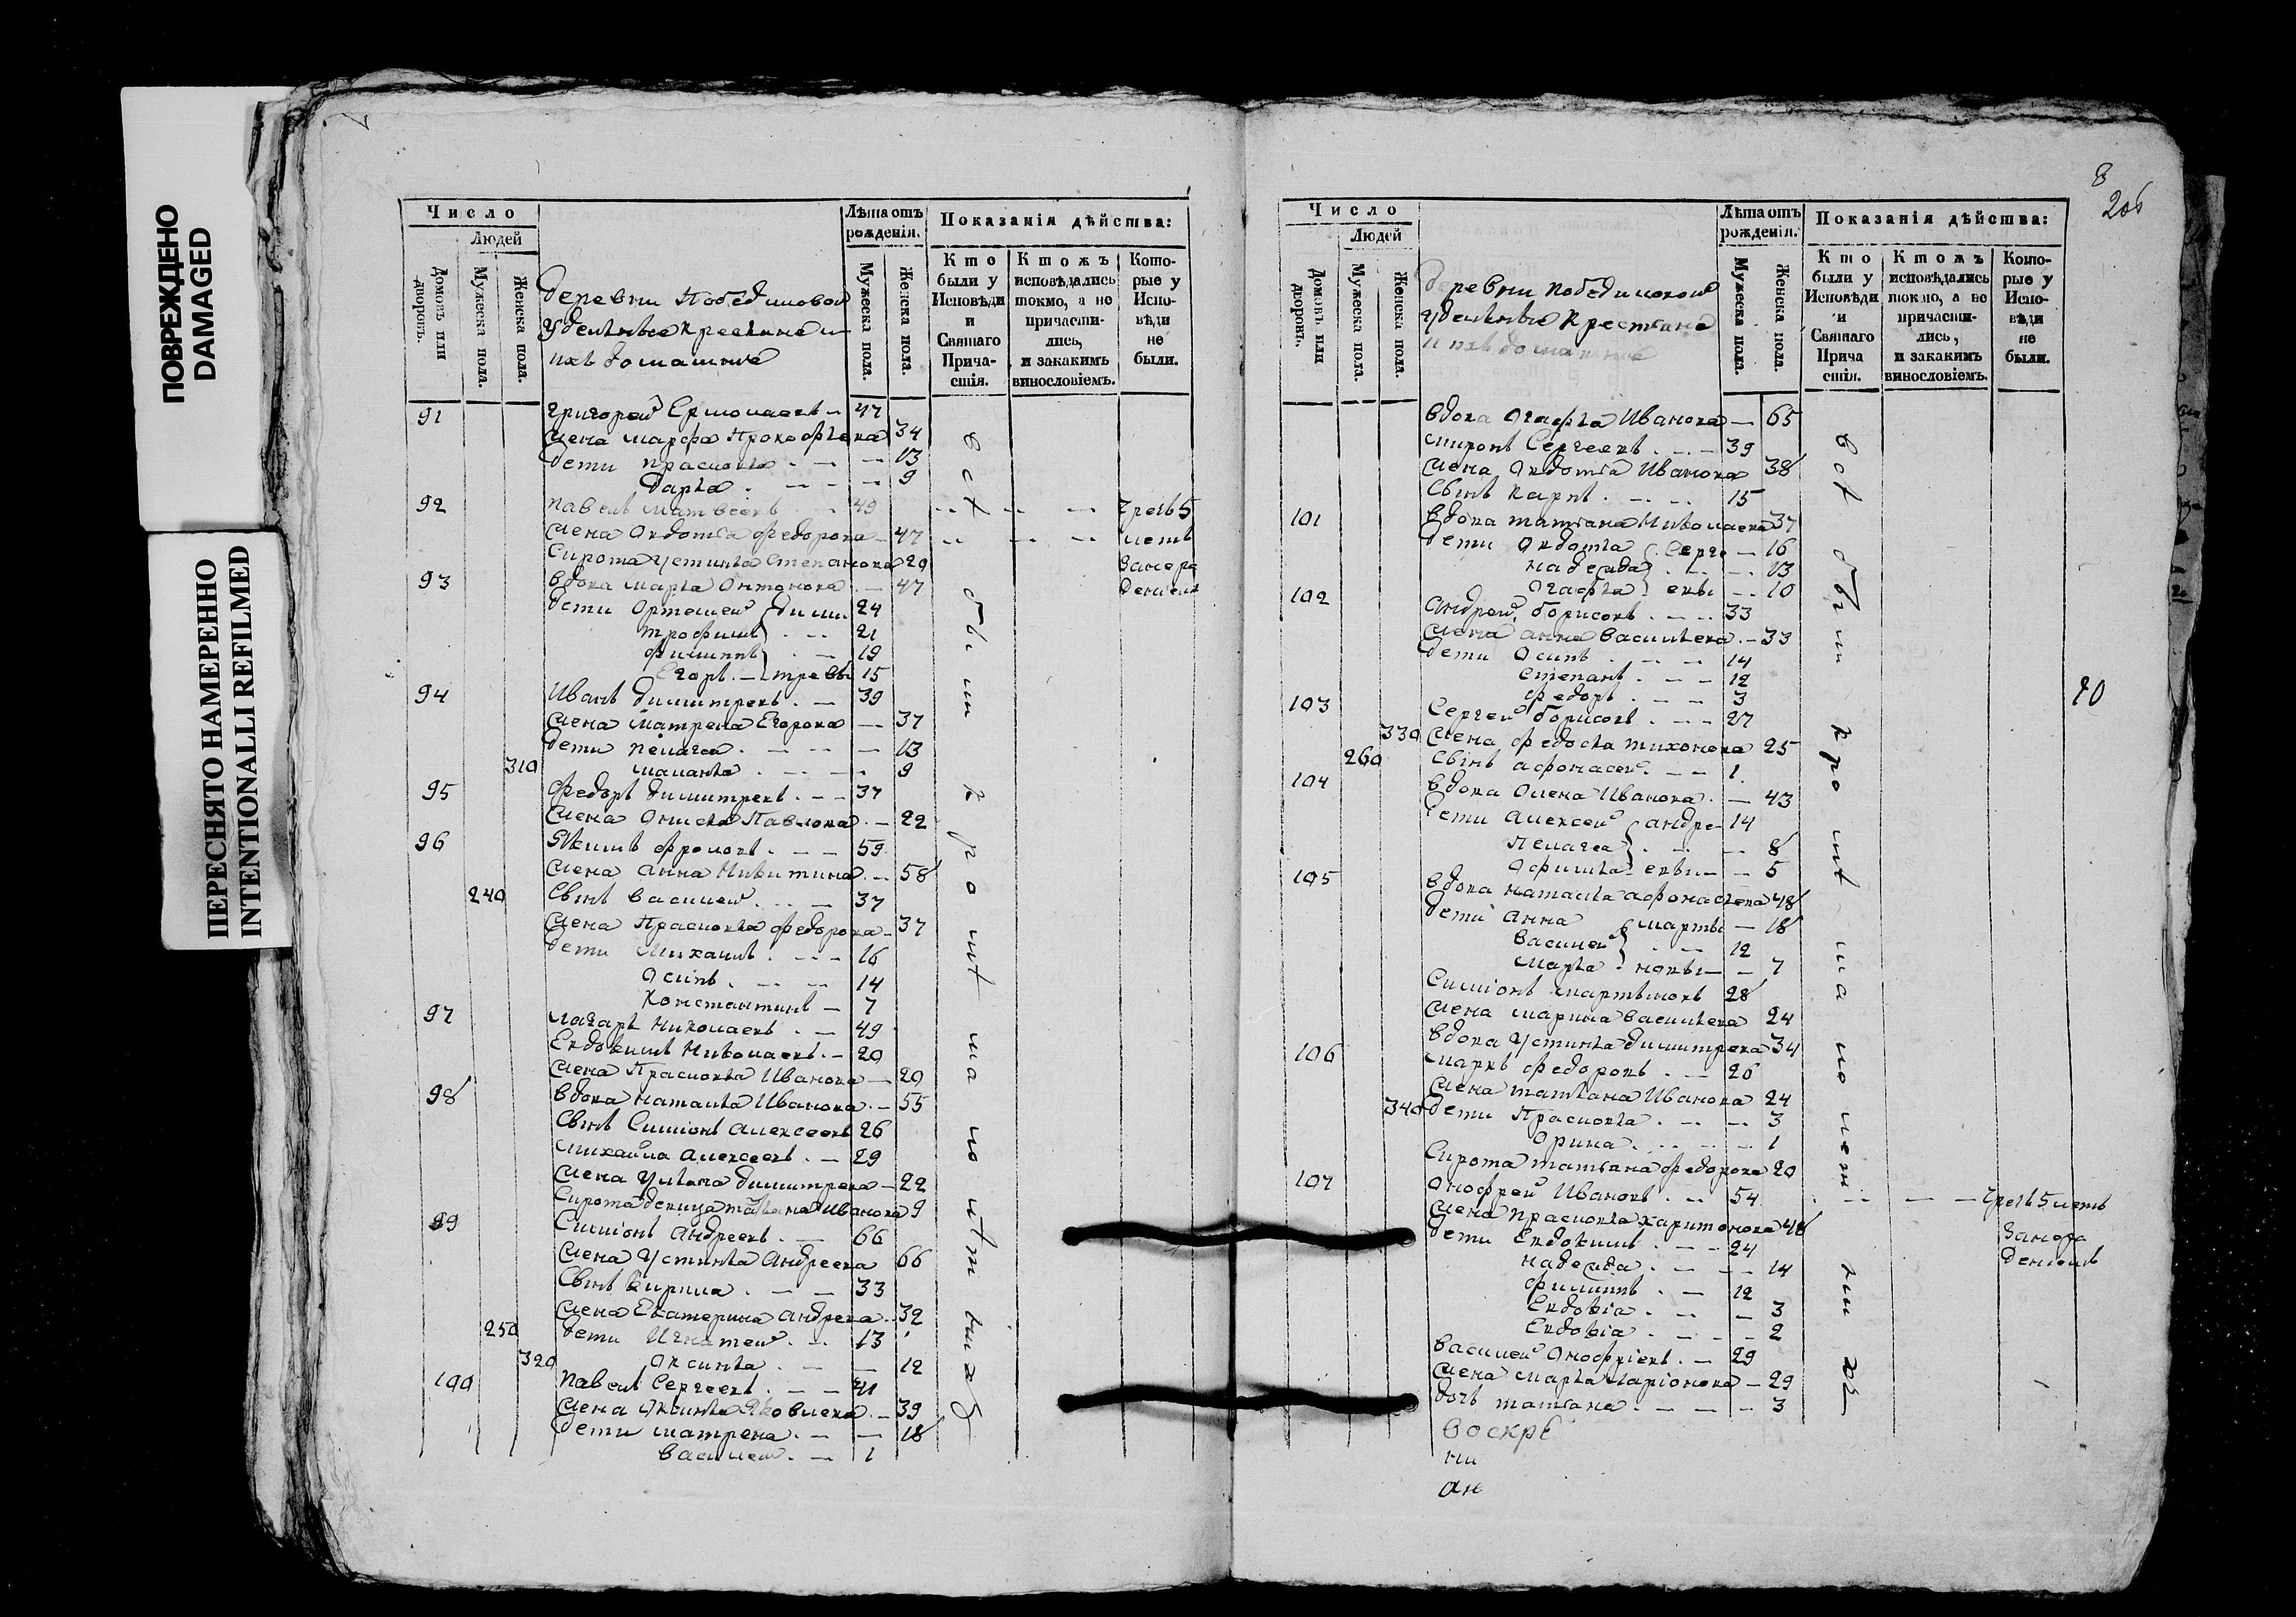 ПОВРЕЖДЕНО
DAMAGED
ПЕРЕСНЯТО НАМЕРЕННО
INTENTIONALLI REFILMED
Число
Людей
Домовъ или дворовъ.
Мужеска пола.
Женска пола.
Лѣта отъ рожденія.
Мужеска пола.
Женска пола.
Показанія дѣйства:
Кто были у Исповѣди и Святаго Причастія.
Ктожъ исповѣдались токмо, а не причастились, и закакимъ винословіемъ.
Которые у Исповѣди не были.
деревни Победимовой
Удельные крестьяне и
ихъ домашние
91 Григорей Ермолаевъ 47
жена Марфа Прокофьева 34
дети Прасковья 13
Дарья 9
92 Павелъ Матвеевъ 49 чрезъ 5
жена Авдотья Федорова 47 летъ
Сирота Устинья Степанова 29 Занера
93 вдова Марья Антонова 47 дениемъ
дети Артемей Дими 24
Трофимъ 21
Филиппъ 19
Егоръ треевы 15
94 Иванъ Димитревъ 39
жена Матрена Егорова 37
дети Пелагея 13
310 Маланья 9
95 Федоръ Димитревъ 37
жена Анисья Павлова 22
96 Якимъ Фроловъ 59
жена Анна Никитина 58
240 Сынъ Василей 37
жена Прасковья Федорова 37
дети Михаилъ 16
Осипъ 14
Константинъ 7
97 Лазарь Николаевъ 49
Евдокимъ Николаевъ 20
жена Прасковья Иванова 20
98 вдова Наталья Иванова 55
Сынъ Симіонъ Алексеевъ 26
Михайла Алексеевъ 29
жена Ульяна Димитрева 22
Сирота девица Татьяна Иванова 9
99 Симіонъ Андреевъ 66
жена Устинья Андреева 66
Сынъ Кирила 33
жена Екатерина Андрева 32
250 дети Игнатей 13
320 Аксинья 12
100 Павелъ Сергеевъ 41
жена Аксинья Яковлева 39
дети Матрена 18
Василей 1
всѣ были кромѣ малолѣтныхъ
8
206
Число
Людей
Домовъ или дворовъ.
Мужеска пола.
Женска пола.
Лѣта отъ рожденія.
Мужеска пола.
Женска пола.
Показанія дѣйства:
Кто были у Исповѣди и Святаго Причастія.
Ктожъ исповѣдались токмо, а не причастились, и закакимъ винословіемъ.
Которые у Исповѣди не были.
деревни Победимовой
Удельные крестьяне
и ихъ домашние
вдова Агафья Иванова 65
Миронъ Сергеевъ 39
жена Авдотья Иванова 38
Сынъ Карпъ 15
101 вдова Татьяна Николаева 37
дети Авдотья Серге 16
Надежда 13
Агафья евы 10
102 Андрей Борисовъ 33
жена Анна Васильева 33
дети Осипъ 14
Степанъ 12
Федоръ 3
103 Сергей Борисовъ 27
330 жена Федосья Тихонова 25
260 Сынъ Афонасей 1
104 вдова Олена Иванова 43
дети Алексей Андре 14
Пелагея 8
Афимья евы 5
105 вдова Наталья Афонасьева 48
дети Анна Марты 18
Василей 12
Марья новы 7
Симіонъ Мартыновъ 28
жена Марина Васильева 24
вдова Устинья Димитрева 34
106 Маркъ Федоровъ 26
жена Татьяна Иванова 24
340 дети Прасковья 3
Орина 1
Сирота Татьяна Федорова 20
107 Онофрей Ивановъ 54 чрезъ 5 летъ
жена Прасковья Харитонова 48 Занера
дети Евдокимъ 24 дениемъ
Надежда 14
Филиппъ 12
Евдокіа 3
Евдокіа 2
Василей Онофріевъ 29
жена Марья Ларіонова 29
дочь Татьяна 3
всѣ были кромѣ малолетныхъ
воскре
ни
ан